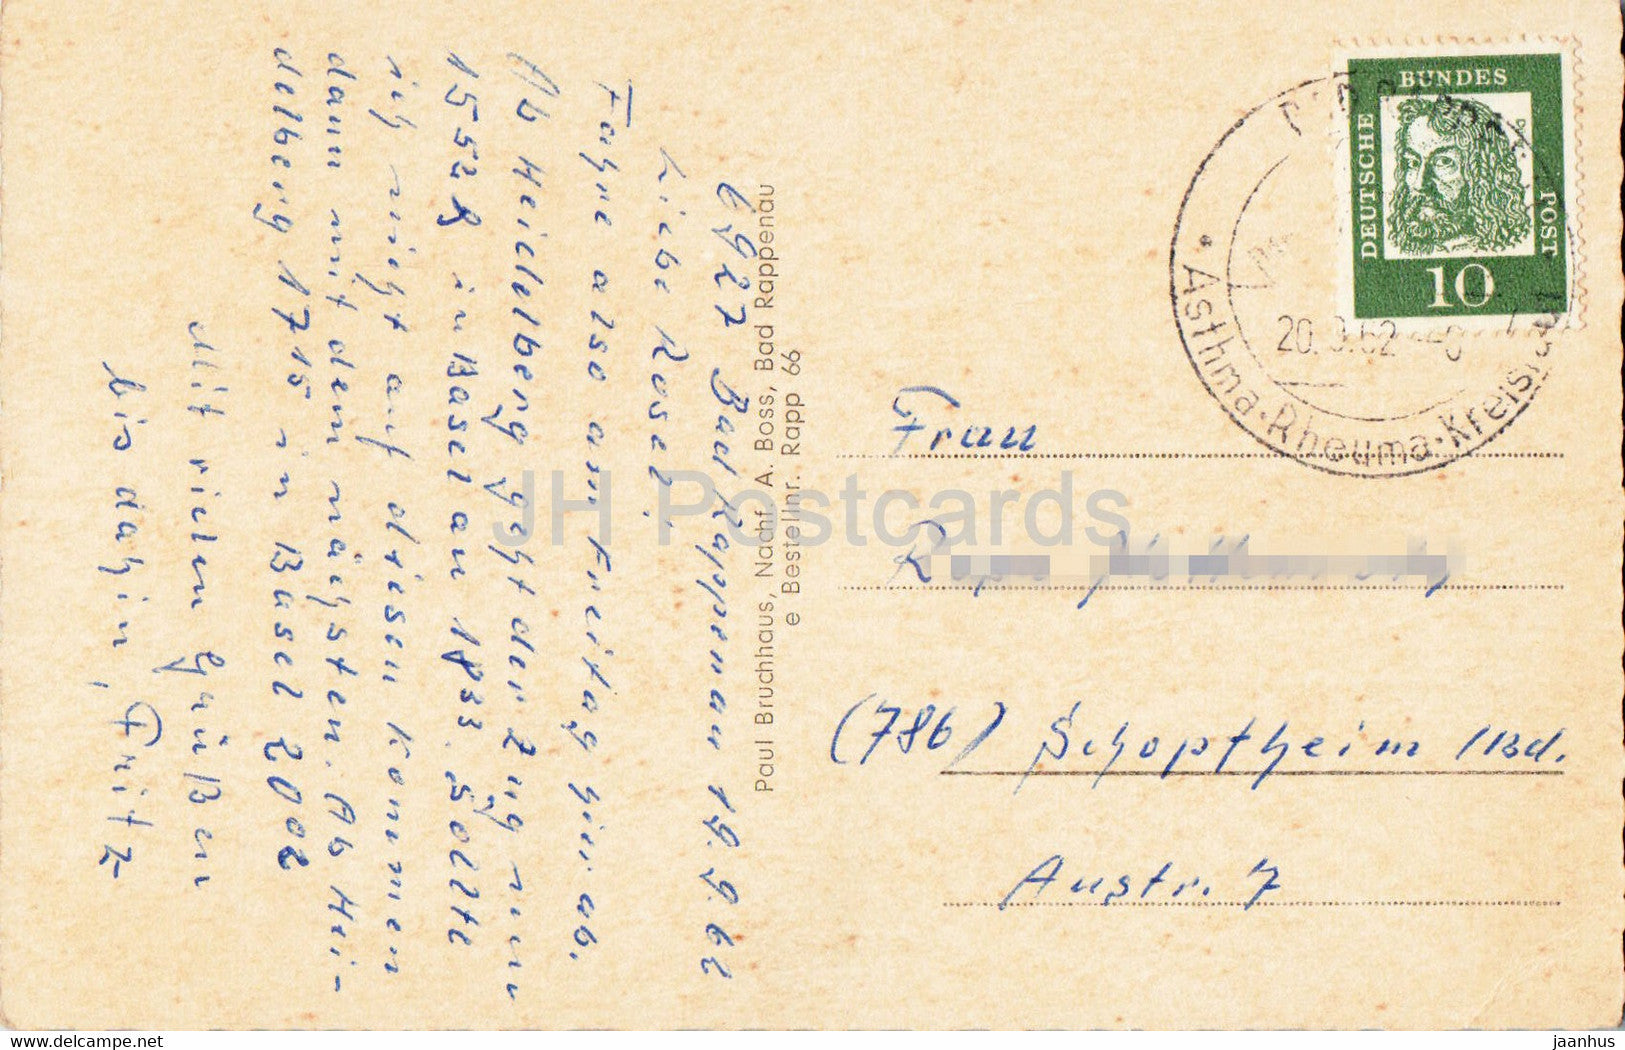 6927 Bad Rappenau 19.9.62
Liebe Rosel,
Fahre also am Freitag hier ab.
Ab Heidelberg geht der Zug nun
1552 & in Basel an 1833. Sollte
ich nicht auf diesen kommen
dann mit dem nächsten. Ab Hei-
delberg 1715 in Basel 2002
Mit vielen Grüßen
bis dahin, Fritz
Paul Bruchhaus, Nachf. A. Boss, Bad Rappenau
e Bestellnr. Rapp 66
DEUTSCHE
BUNDES
POST
10
20.9.62
Asthma·Rheuma·Kreisl
Frau
(786) Schopfheim /Bd.
Austr. 7
JH Postcards
www.delcampe.net
jaanhus